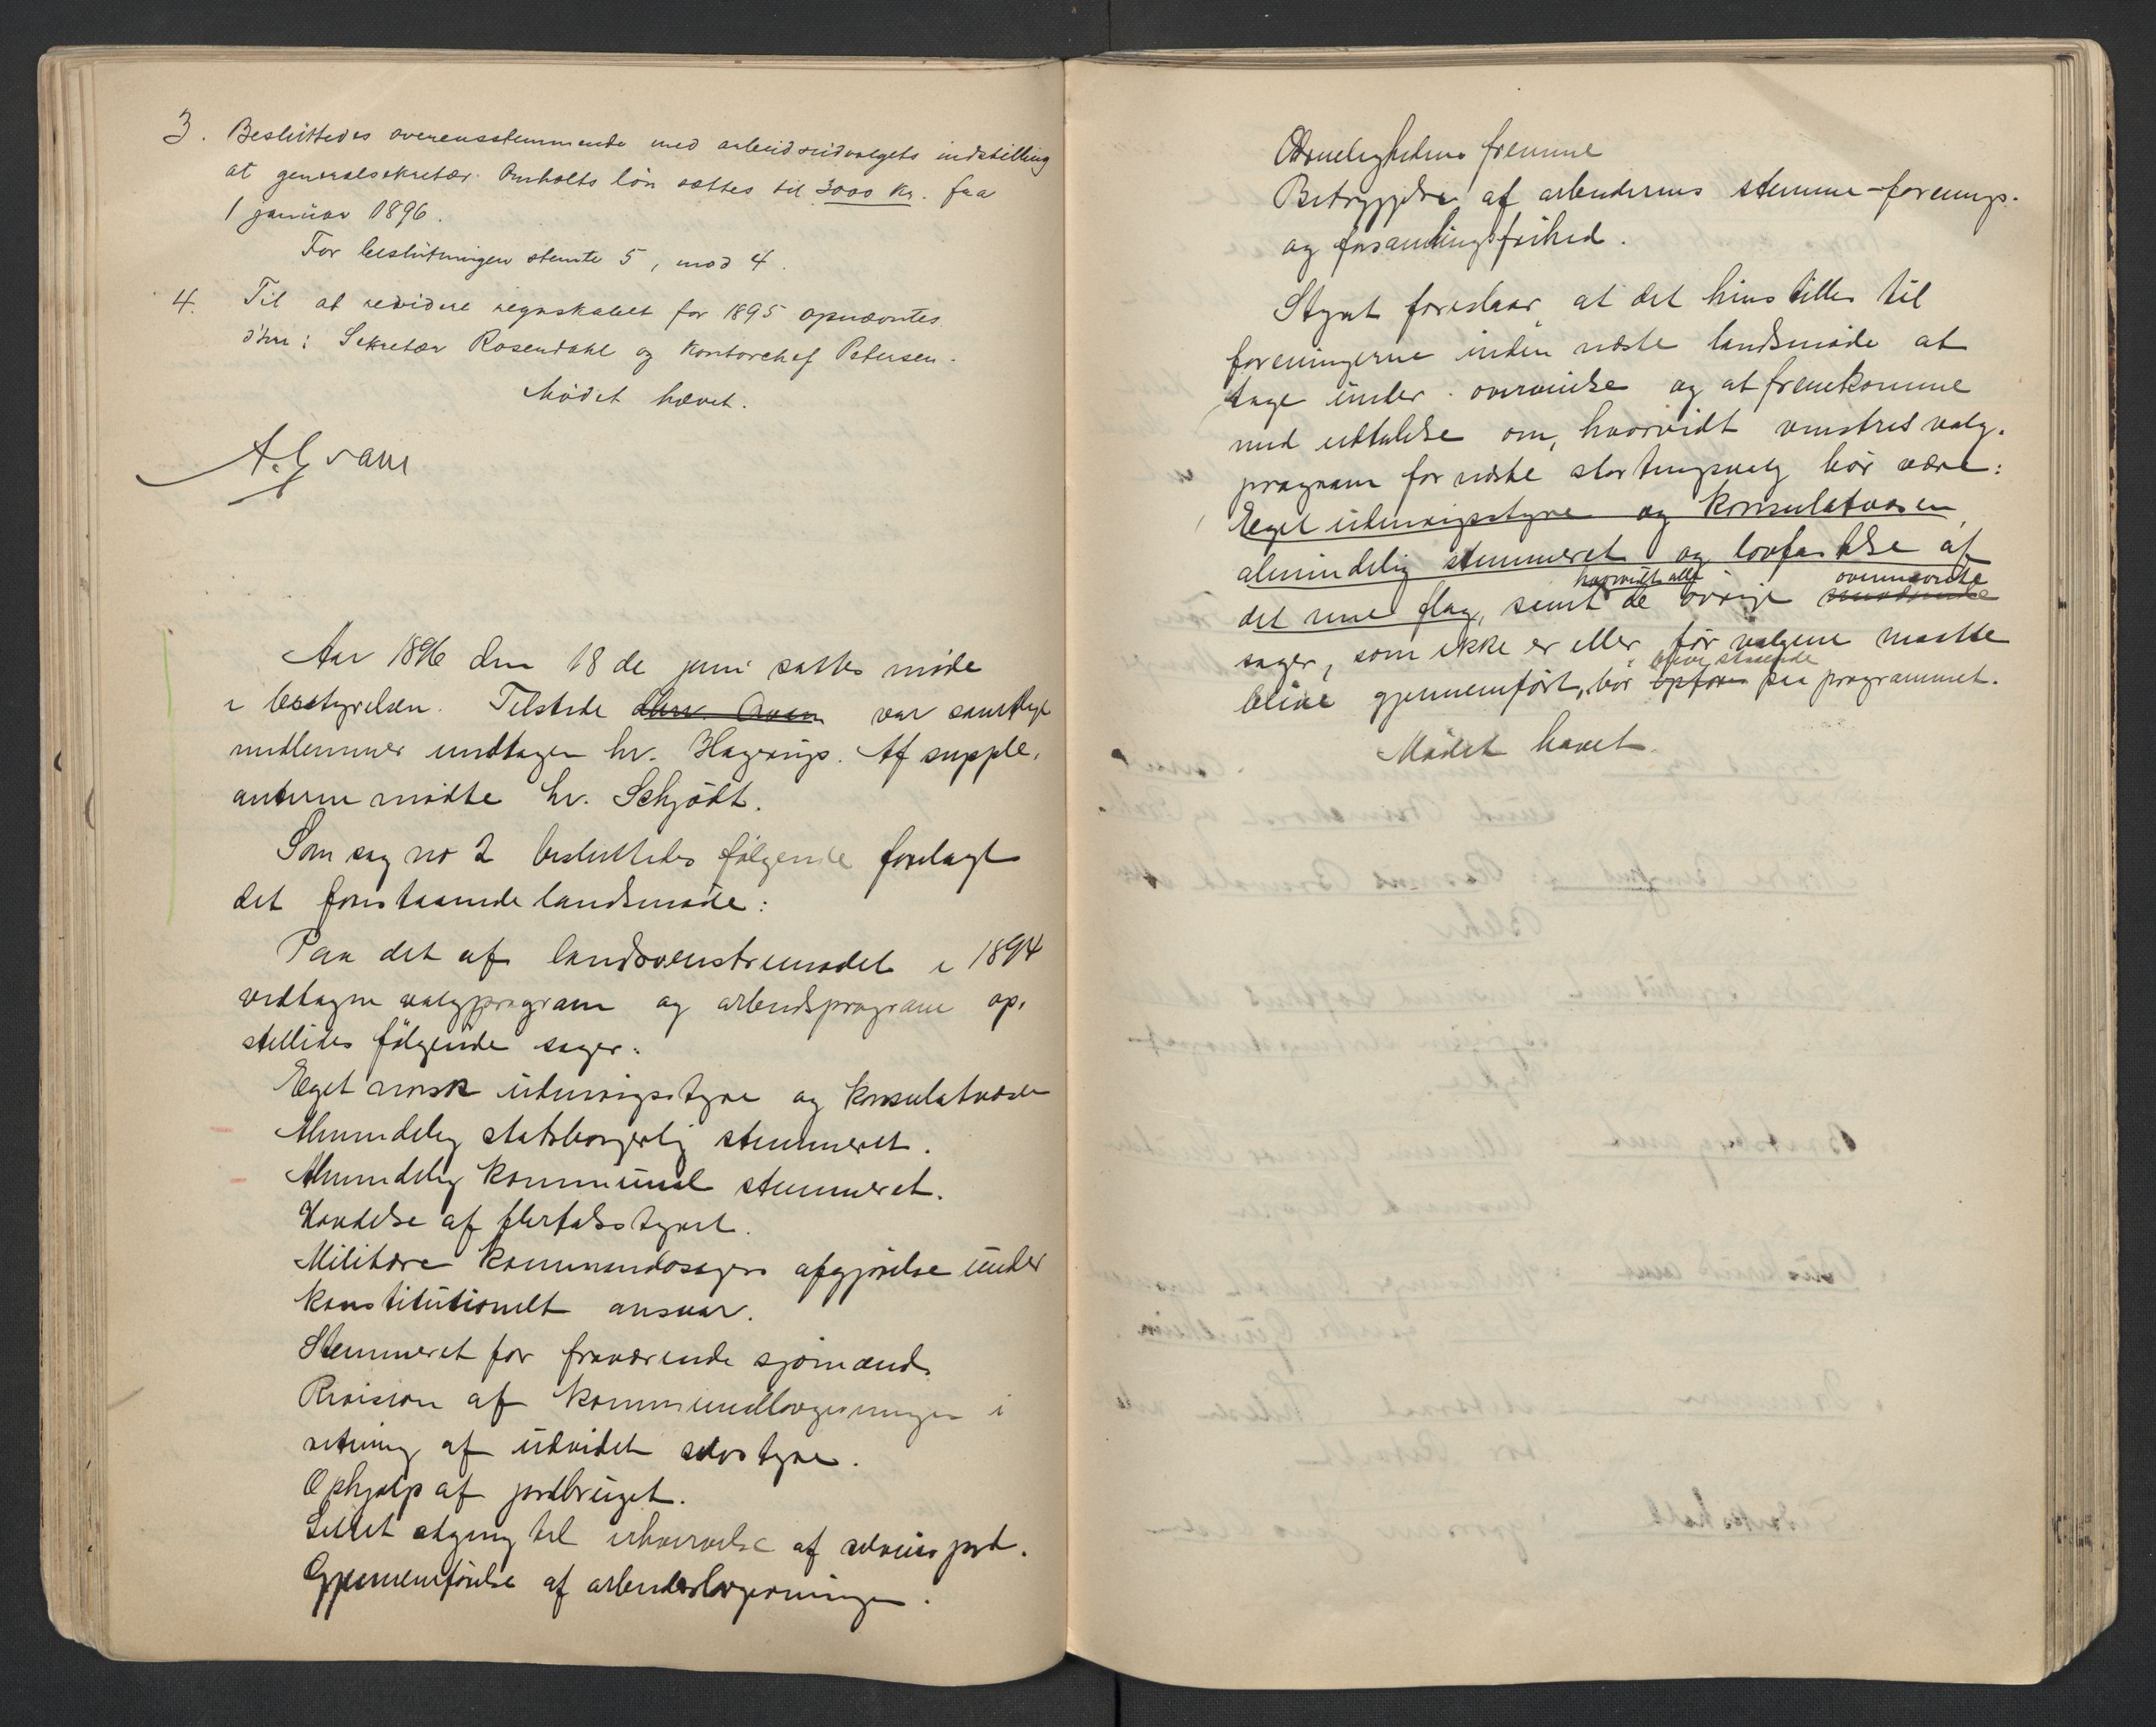 3. Besluttedes overensstemmende med arbeidsudvalgets indstilling
at generalsekretær Omholts løn sættes til 3000 kr. fra
1 januar 1896.
For beslutningen stemte 5, mod 4.
4. Til at revidere regnskabet for 1895 opnævntes
d'hrr: Sekretær Rosendahl og Kontorchef Petersen.
Mødet hævet.
A. Qvam
Aar 1896 den 18de juni sattes møde
i bestyrelsen. Tilstede dhrr. Qvam var samtlige
medlemmer undtagen hr. Hagerups. Af supple-
anterne mødte hr. Schjødt.
Som sag no 2 besluttedes følgende forelagt
det forestaaende landsmøde:
Paa det af landsvenstremødet i 1894
vedtagne valgprogram og arbeidsprogram op-
stilledes følgende sager:
Eget norsk udenrigsstyre og konsulatvæsen
Almindelig statsborgerlig stemmeret.
Almindelig kommunal stemmeret.
Hævdelse af flertalsstyret.
Militære kommandosagers afgjørelse under
konstitutionelt ansvar.
Stemmeret for fraværende sjømænd.
Revision af kommunallovgivningen i
retning af udvidet selvstyre.
Ophjælp af jordbruget.
Lettet adgang til erhvervelse af selveierjord.
Gjennemførelse af arbeiderlovgivningen.
Ædrueligheden fremme
Betryggelse af arbeidernes stemme-forenings-
og forsamlingsfrihed.
Styret foreslaar, at det henstilles til
foreningerne inden næste landsmøde at
tage under overveielse og at fremkomme
med udtalelse om, hvorvidt venstres valg-
program for næste stortingsvalg bør være:
Eget udenrigsstyre og konsulatvæsen,
almindelig stemmeret og lovfæstelse af
hvorvidt alle ovennævnte
det rene flag, samt de øvrige
sager, som ikke er eller før valgene maatte
blive staaende
blive gjennemført, bør opføres paa programmet.
Mødet hævet.